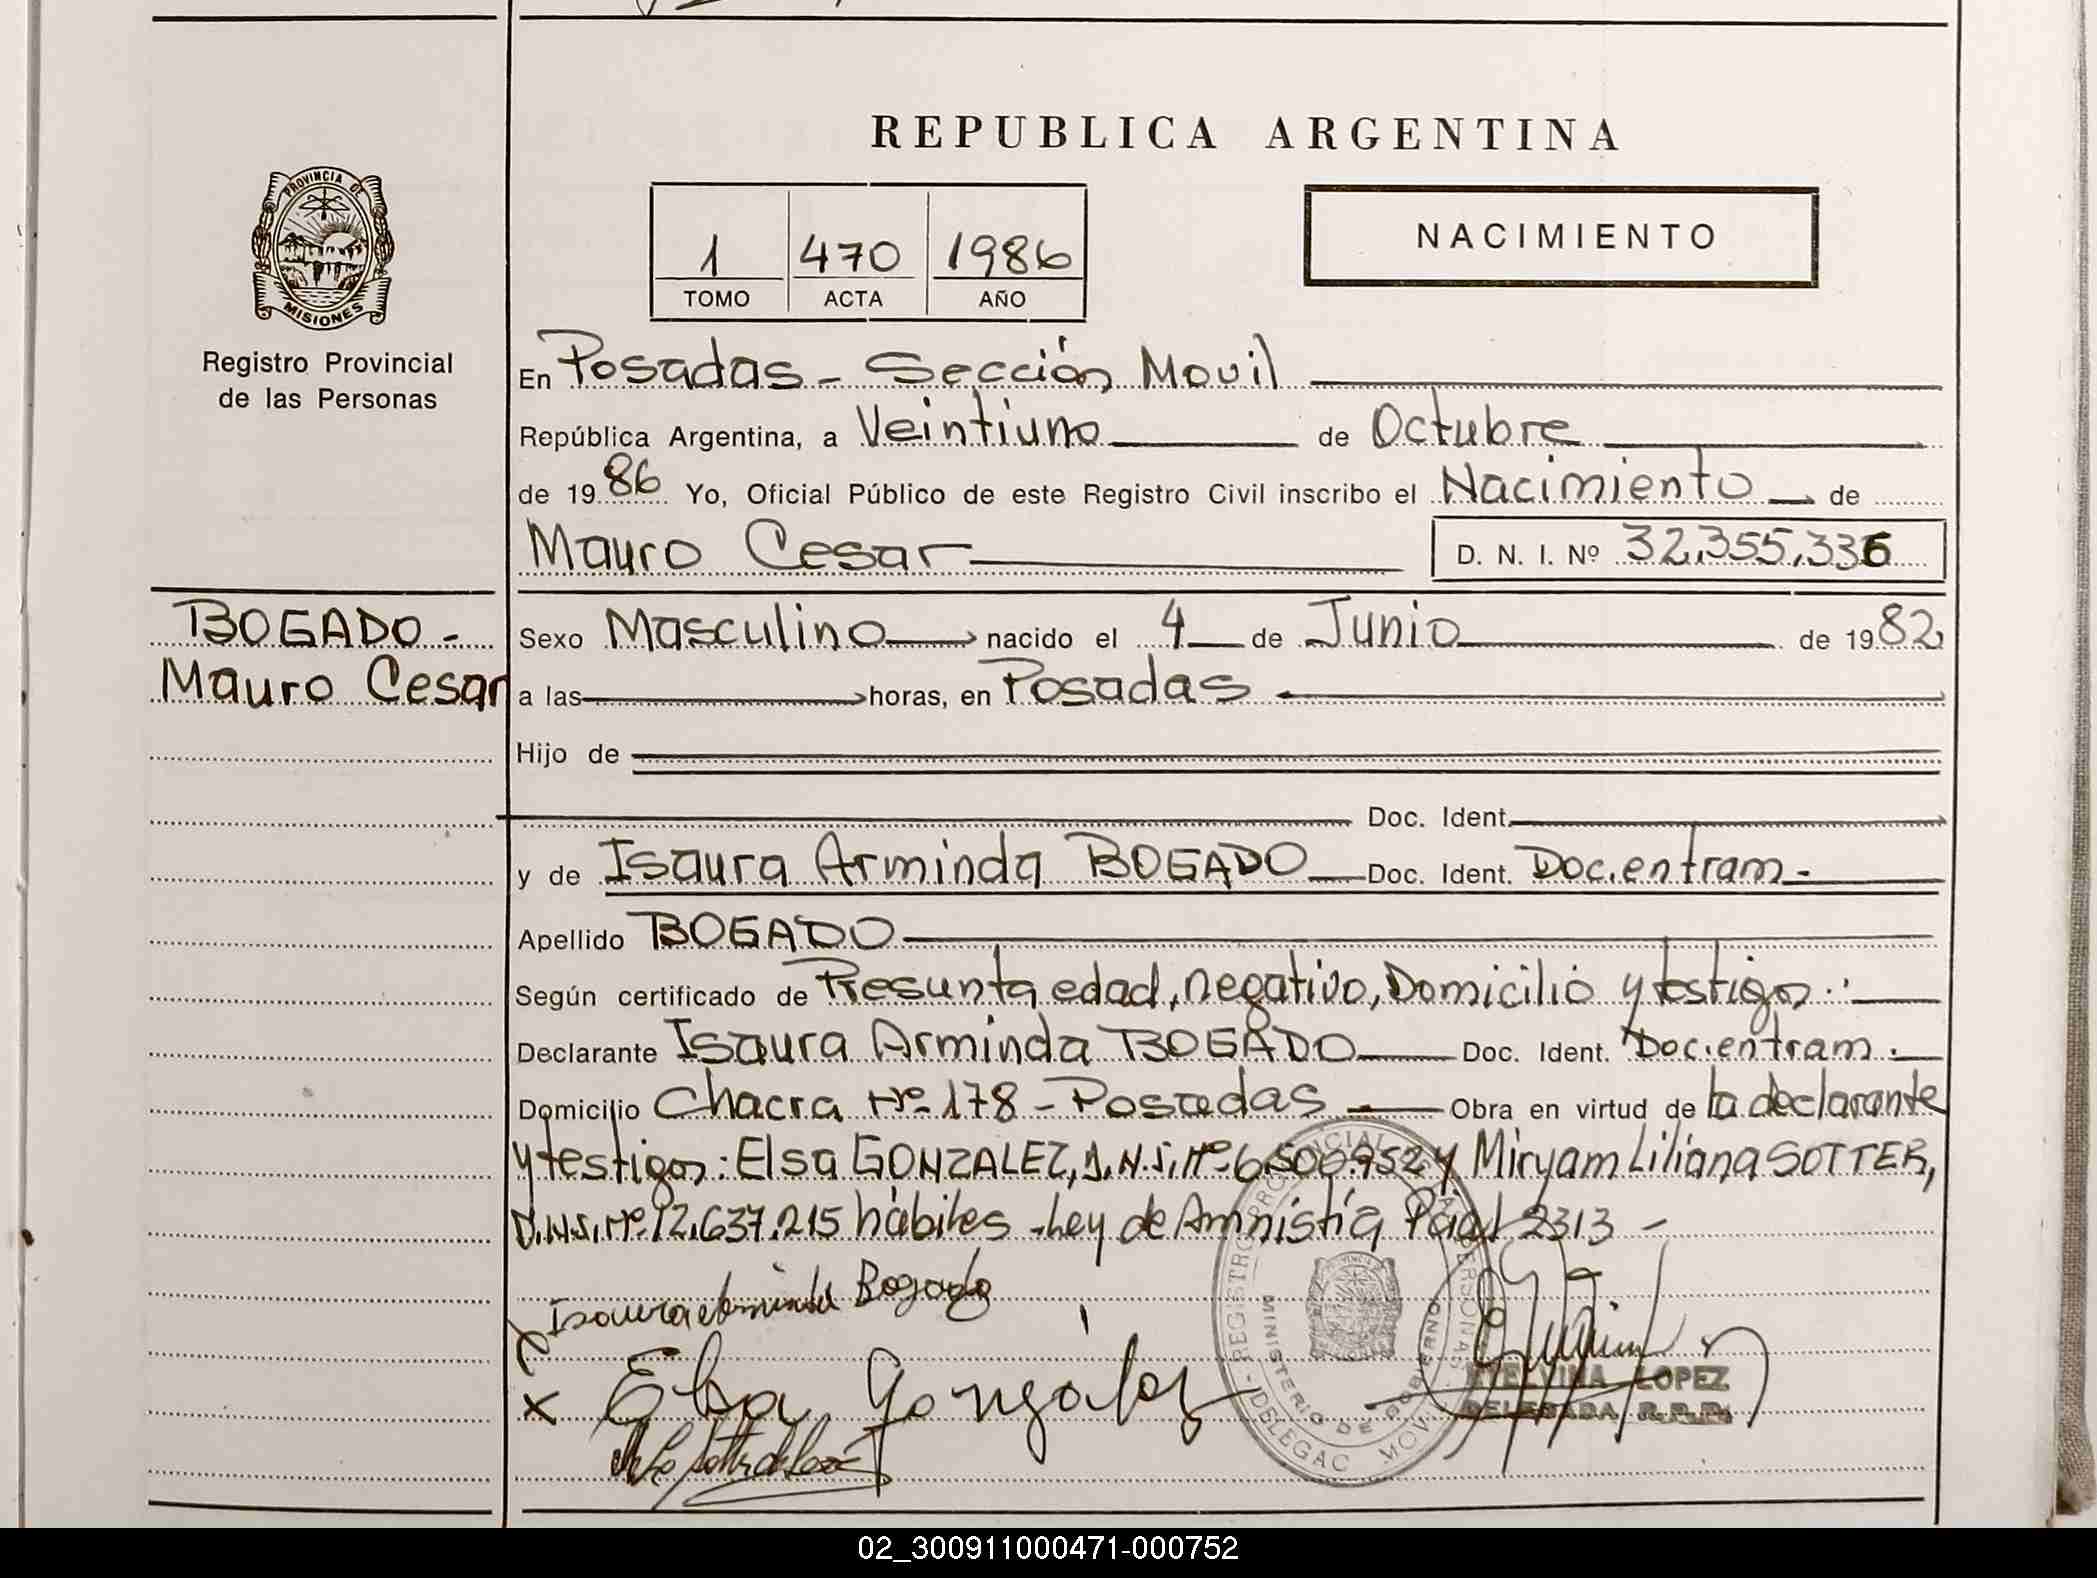 REPUBLICA ARGENTINA
PROVINCIA DE
MISIONES
Registro Provincial
de las Personas
1 470 1986
TOMO ACTA AÑO
NACIMIENTO
En Posadas - Sección Movil
República Argentina, a Veintiuno de Octubre
de 1986 Yo, Oficial Público de este Registro Civil inscribo el Nacimiento de
Mauro Cesar D. N. I. Nº 32.355.336
BOGADO -
Mauro Cesar
Sexo Masculino nacido el 4 de Junio de 1982
a las horas, en Posadas
Hijo de
Doc. Ident.
y de Isaura Arminda BOGADO Doc. Ident. Doc. en tram.
Apellido BOGADO
Según certificado de Presunta edad, negativo, Domicilio y testigos.:
Declarante Isaura Arminda BOGADO Doc. Ident. Doc. en tram.
Domicilio Chacra Nº 178 - Posadas Obra en virtud de la declarante
y testigos: Elsa GONZALEZ, D.N.I. Nº 6.506.952 y Miryam Liliana SOTTER,
D.N.I. Nº 12.637.215 hábiles - Ley de Amnistía 2313 -
Isaura Arminda Bogado
X Elsa Gonzalez
REGISTRO PROVINCIAL DE LAS PERSONAS
MINISTERIO DE GOBIERNO
DELEGAC MOV
ETELVINA LOPEZ
DELEGADA R.P.P.
02_300911000471-000752